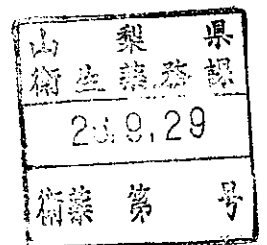 山梨県
衛生薬務課
29.9.29
衛薬第 号